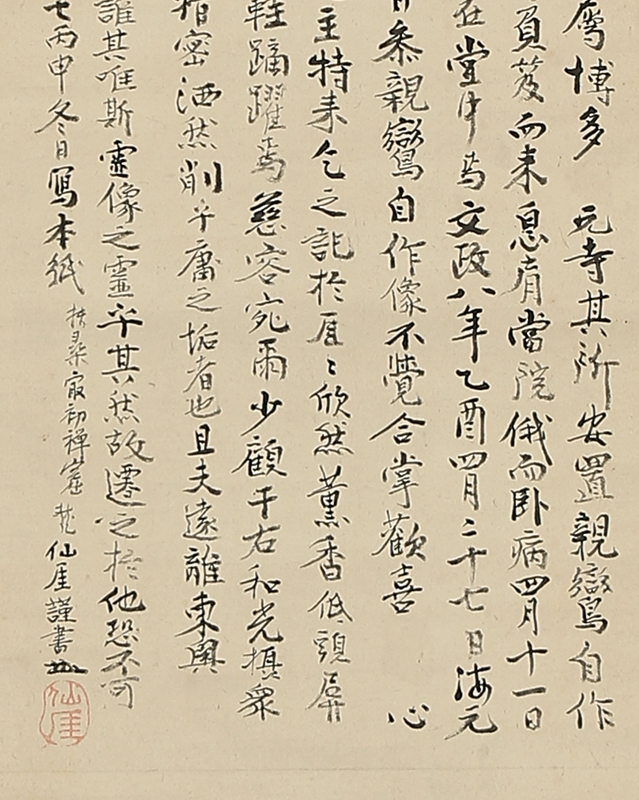 博多 元寺其所安置親鸞自作
負笈而来息肩當院俄而卧病四月十一日
在堂中焉文政八年乙酉四月二十七日海元
日参親鸞自作像不覺合掌歡喜 心
主特来乞之記於厓〻欣然薫香低頭屏
軽踊躍焉慈容宛爾少觀于右和光攝衆
指密洒然削乎庸之垢者也且夫遠離東輿
誰其唯斯霊像之霊乎其然故遷之於他恐不可
七丙申冬日写本紙 扶桑最初禅窟 梵仙厓謹書
仙厓